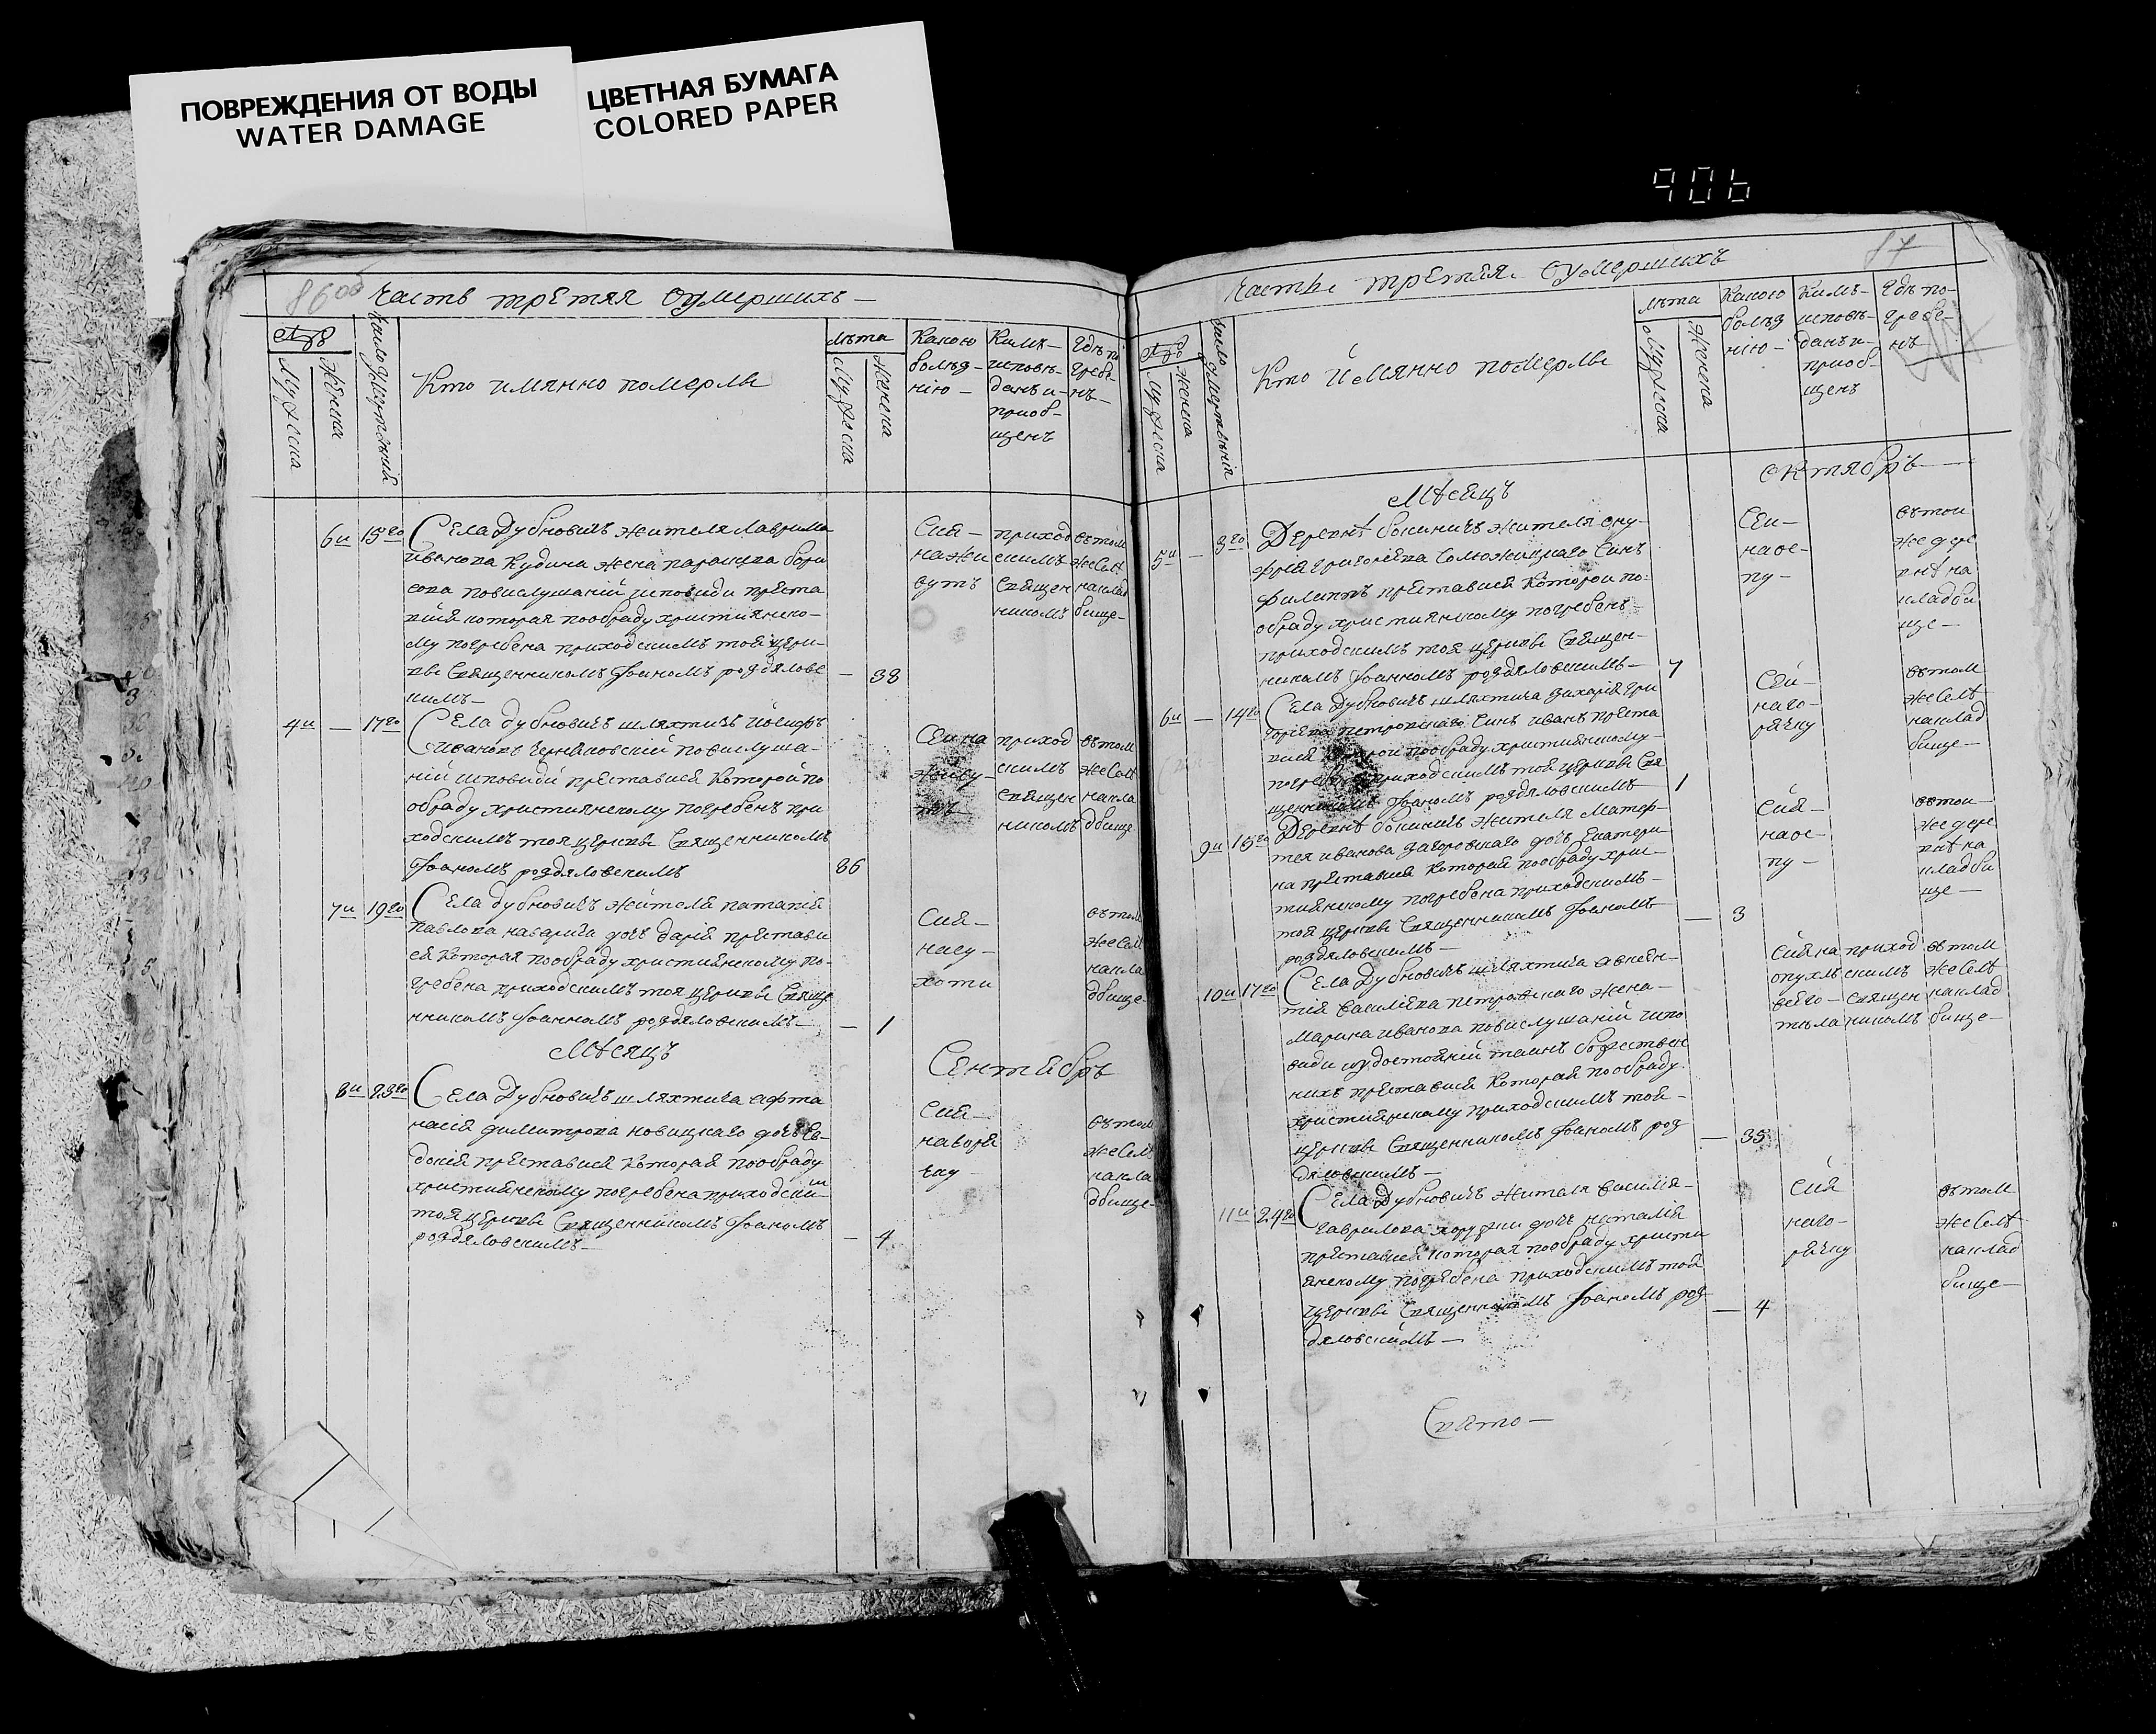 ПОВРЕЖДЕНИЯ ОТ ВОДЫ
WATER DAMAGE
ЦВЕТНАЯ БУМАГА
COLORED PAPER
906
86об
Часть третяя оумершихъ —
Мужеска
Женска
Число умертвий
Кто имянно померлъ
лѣта
Мужеска
Женска
Какою
болѣз-
нію —
Кимъ —
исповѣ-
данъ и-
приоб-
щенъ
Гдѣ по
гребе
нъ —
6и 15го
Села Дубновичъ жителя Лаврина
Иванова Кудина жена параскева бори
сова повислушаній исповиди преста
вися которая пообряду християнско-
му погребена приходскимъ тоя церк-
ви Священникомъ Іоаномъ роздялове
кимъ —
— 38
Сия —
на жи
вутъ
приход
скимъ
Священ
никомъ
вътом
жеселѣ
наклад
бище —
4и — 17го
Села Дубновичъ шляхтичъ Иосифъ
Ивановъ Черняковскій повислуша-
ній исповиди преставися Которой по
обряду християнскому погребенъ при
ходскимъ тоя церкви Священникомъ
Іоаномъ роздяловскимъ
86
Сеи на
живу-
тъ
приход
скимъ
Священ
никомъ
вътом
жеселѣ
накла
дбище
7и 19го
Села дубновичъ жителя патапія
павлова наварича дочь дарія престави
ся Которая пообряду християнскому по-
гребена приходскимъ тоя церкви Свяще
нникомъ Іоанномъ роздяловскимъ —
— 1
Сия —
насу-
хоти
вътом
жеселѣ
накла
дбище —
Мѣсяцъ
Сентябръ
8и 23го
Села Дубновичъ шляхтича афта
насія димитрова новицкаго дочь Ев-
докія преставися Которая пообряду
християнскому погребена приходским
тоя церкви Священникомъ Іоаномъ
роздяловскимъ —
— 4
Сия —
наворя
чку
вътом
жеселѣ
накла
дбище —
87
Часть третяя оумершихъ
Мужеска
Женска
Число умертвія
Кто Йимянно померлъ
лѣта
Мужеска
Женска
Какою
болѣз
нію —
Кимъ —
исповѣ-
данъ и-
приоб-
щенъ
Гдѣ по-
гребе-
нъ
Мѣсяцъ
октябрь
5и — 3го
Деревнѣ бокиничъ жителя ону-
фрія григоріева Соложицкаго Синъ
филиппъ преставися Которои по-
обряду християнскому погребенъ
приходскимъ тоя церкви Священ-
никомъ Іоаномъ роздяловскимъ —
7
Сеи —
наос-
пу —
вътои
жедере
внѣ на
кладби
ще —
6и — 14го
Села Дубновичъ шляхтича Захарія гри
горіева петровскаго Синъ иванъ преста
вися Которои пообряду християнскому
погребенъ приходскимъ тоя церкви Свя
щенникомъ Іоаномъ роздяловскимъ
1
Сеи —
наго-
рячку
вътом
жеселѣ
наклад
бище —
9и 15го
Деревнѣ бокиничъ жителя Матер-
тея иванова Загоровскаго дочь Екатери
на преставися Которая пообряду хри-
стиянскому погребена приходскимъ —
тоя церкви Священникомъ Іоаномъ
роздяловскимъ —
— 3
Сия —
наос-
пу —
вътои —
жедере
внѣ на
кладби
ще —
10и 17го
Села Дубновичъ шляхтича авксен-
тія василіева петровскаго жена —
Марина иванова повислушаній испо
види иудостояній таинъ божествен
нихъ преставися Которая пообряду
християнскому приходскимъ тоя —
церкви Священникомъ Іоаномъ роз
дяловскимъ —
— 35
Сия на
опухлѣ
всѣго —
тѣла
приход
скимъ
священ
никомъ
вътом
жеселѣ
наклад
бище —
11и 24го
Села Дубновичъ жителя василія —
гаврилова хоружи дочь наталия
преставися Которая пообряду христи
янскому погребена приходскимъ тоя
церкви Священникомъ Іоаномъ роз
дяловскимъ —
— 4
Сия
наго-
рячку
вътом
жеселѣ
наклад
бище —
Свято —